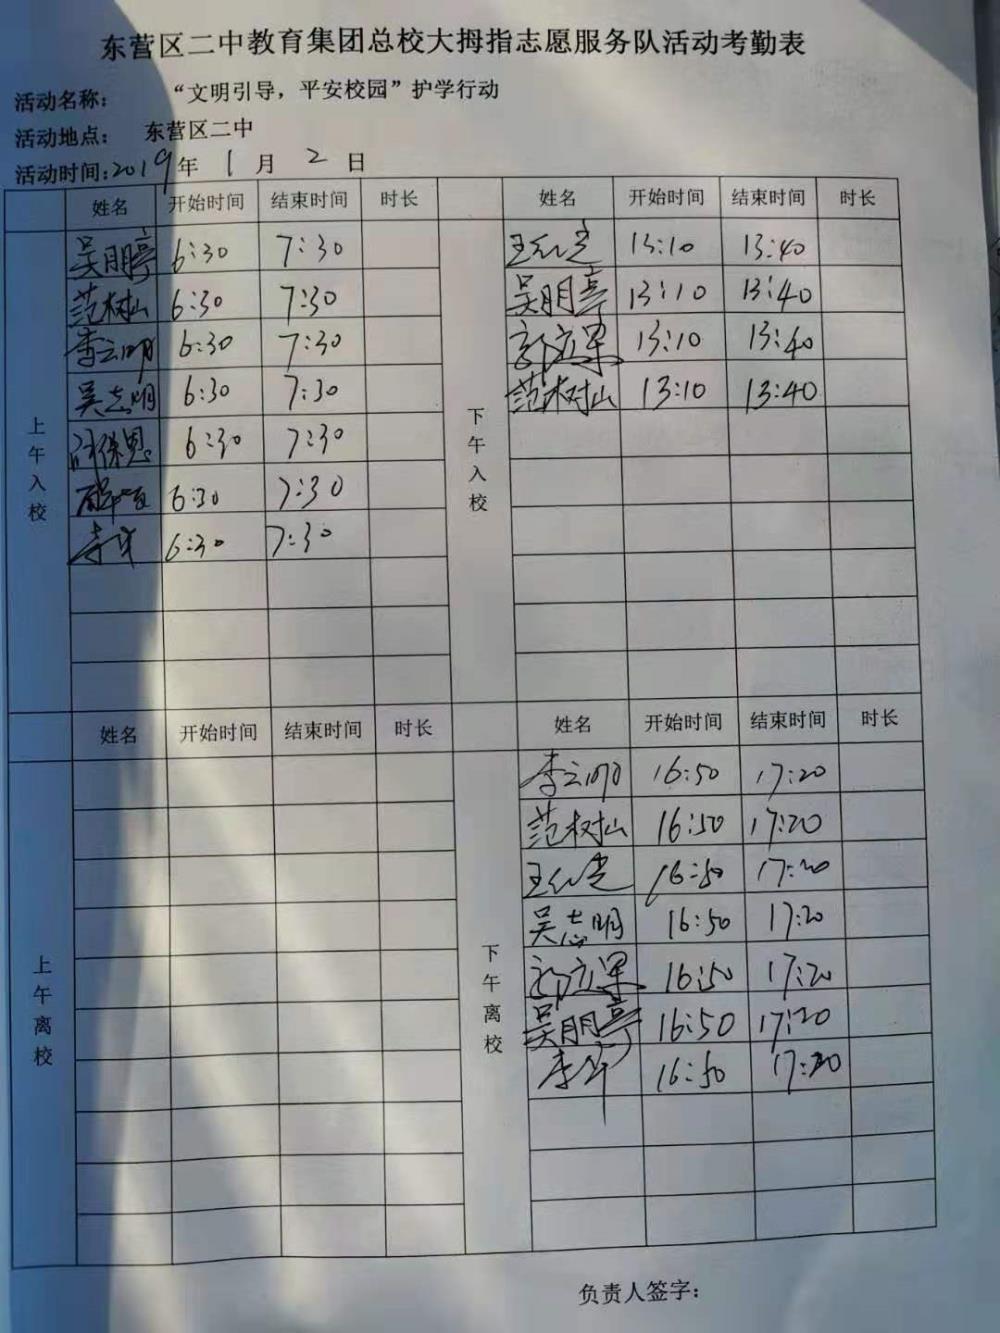 东营区二中教育集团总校大拇指志愿服务队活动考勤表
活动名称： “文明引导，平安校园”护学行动
活动地点： 东营区二中
活动时间:2019年 1 月 2 日
姓名 开始时间 结束时间 时长 姓名 开始时间 结束时间 时长
上午入校
吴朋亭 6:30 7:30
范树山 6:30 7:30
李云明 6:30 7:30
吴志明 6:30 7:30
6:30 7:30
6:30 7:30
6:30 7:30
下午入校
13:10 13:40
吴朋亭 13:10 13:40
13:10 13:40
范树山 13:10 13:40
姓名 开始时间 结束时间 时长 姓名 开始时间 结束时间 时长
上午离校
下午离校
李云明 16:50 17:20
范树山 16:50 17:20
16:50 17:20
吴志明 16:50 17:20
16:50 17:20
吴朋亭 16:50 17:20
李军 16:50 17:20
负责人签字：